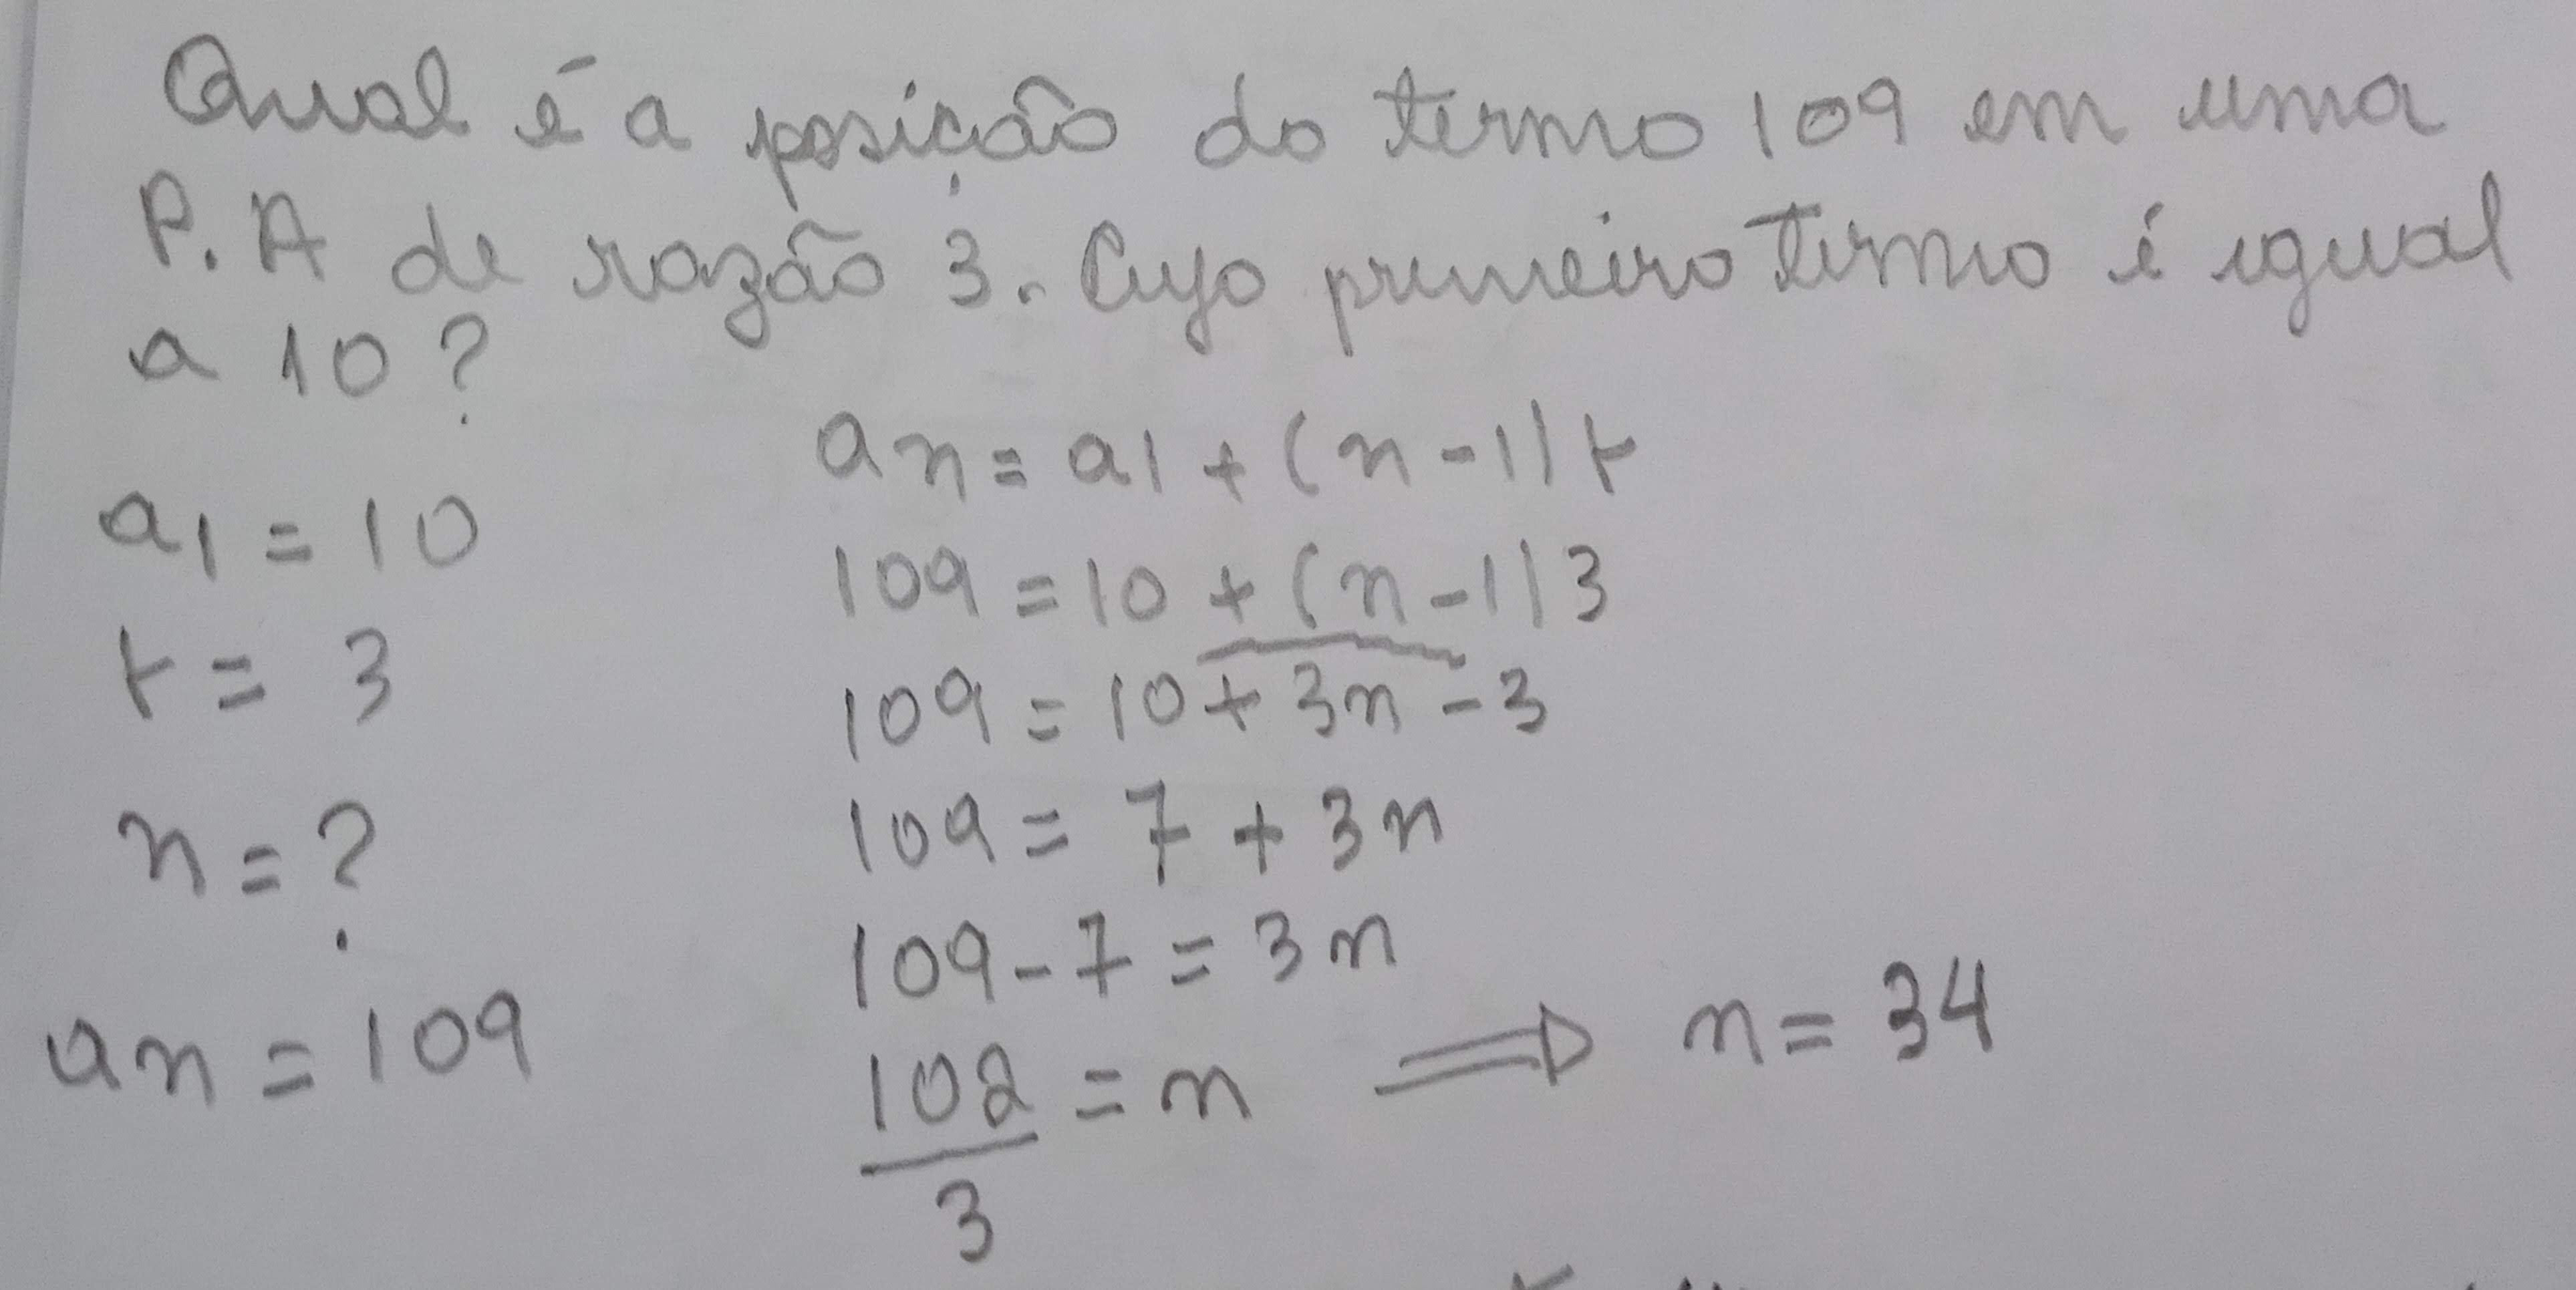 Qual é a posição do termo 109 em uma
P.A de razão 3. Cujo primeiro termo é igual
a 10?
an = a1 + (n - 1) r
a1 = 10
109 = 10 + (n - 1) 3
r = 3
109 = 10 + 3n - 3
n = ?
109 = 7 + 3n
109 - 7 = 3n
an = 109
102/3 = n ⇒ n = 34